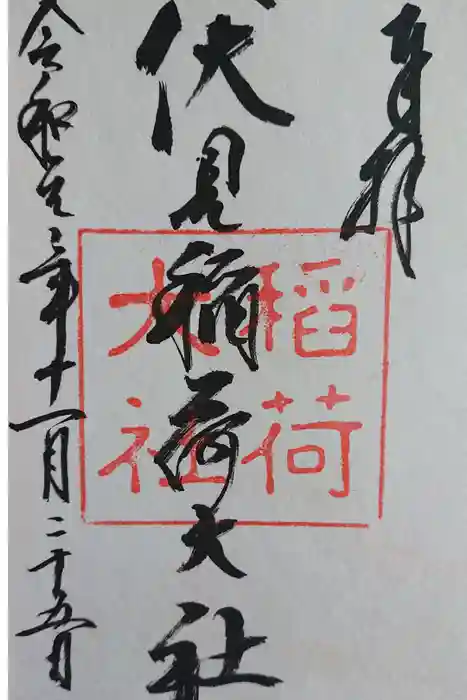 奉拝
伏見稲荷大社
稲荷
大社
令和元年十一月二十五日